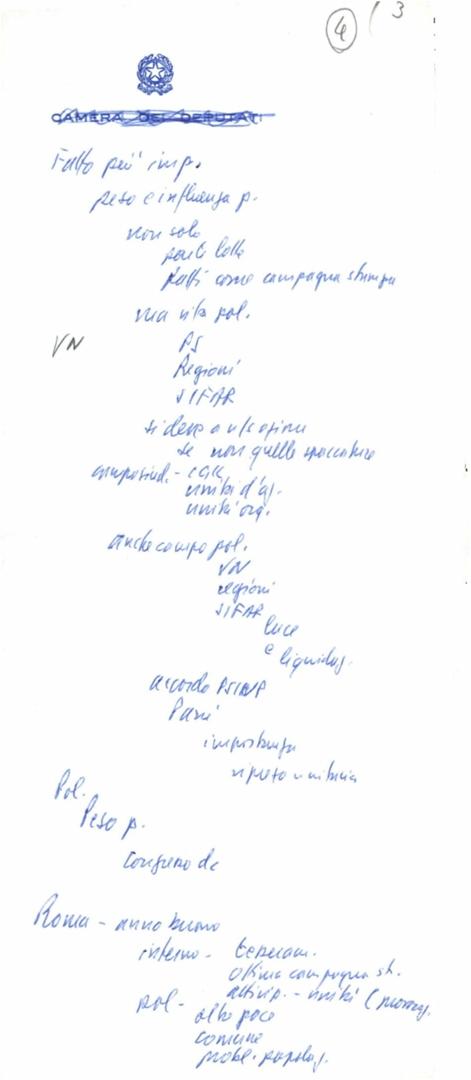 4 3
CAMERA DEI DEPUTATI
Fatto più imp.
peso e influenza p.
non solo
lotte
fatti come campagna stampa
ma vita pol.
VN PS
Regioni
SIFAR
si deve a
se non quelle spaccature
unità d'az.
unità org.
anche campo pol.
VN
regioni
SIFAR
luce
e liquidaz.
accordo PSIUP
Parri
importanza
ripeto unitaria
Pol.
Peso p.
Congresso dc
Roma - anno buono
interno - tesseram.
ottima campagna st.
attivip. - unità
pol - alto pace
comune
probl. popolaz.